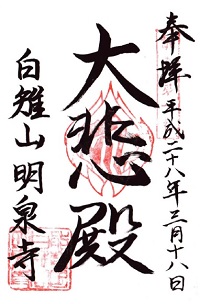 奉拝 平成二十八年三月十八日
大悲殿
白雉山 明泉寺